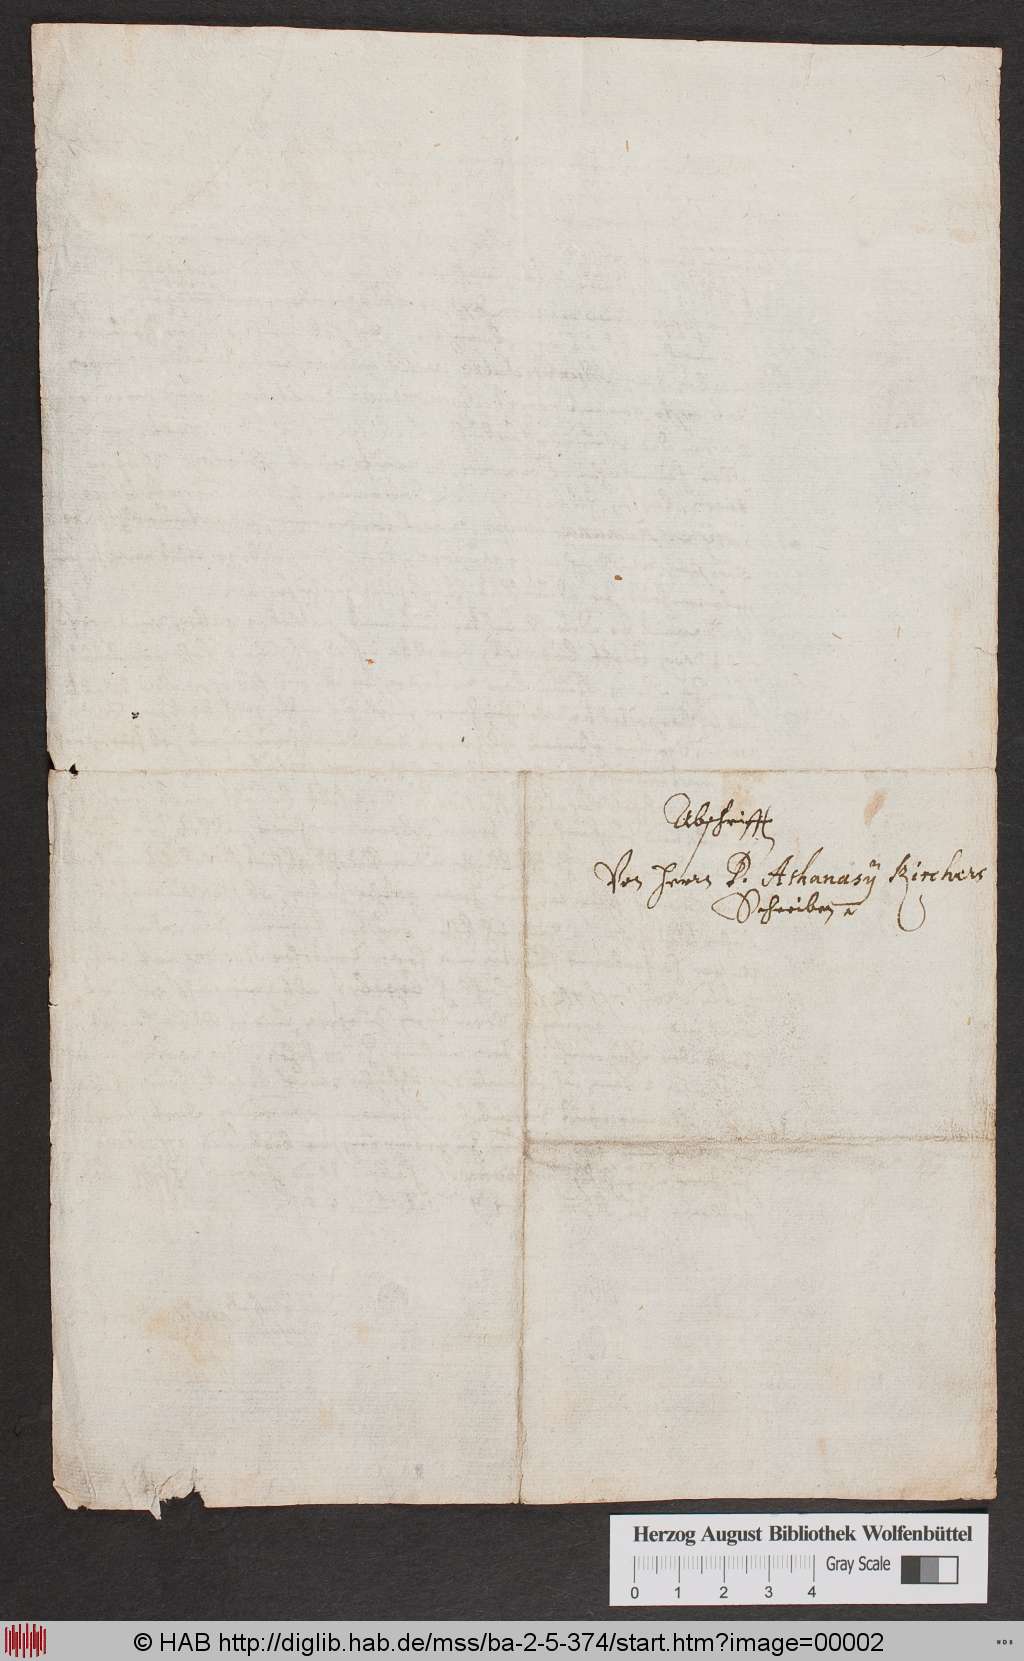 Abschrifft
Von Herrn P. Athanasÿ Kirchers
Schreiben
Herzog August Bibliothek Wolfenbüttel
Gray Scale
0 1 2 3 4
© HAB http://diglib.hab.de/mss/ba-2-5-374/start.htm?image=00002